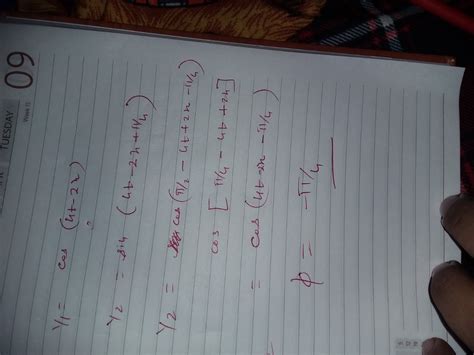 09
TUESDAY
Week 15
Y1 = cos (4t-2x)
Y2 = sin (4t-2x+π/4)
Y2 = cos (π/2 - 4t+2x-π/4)
cos [π/4 - 4t+2x]
= cos (4t-2x - π/4)
φ = -π/4